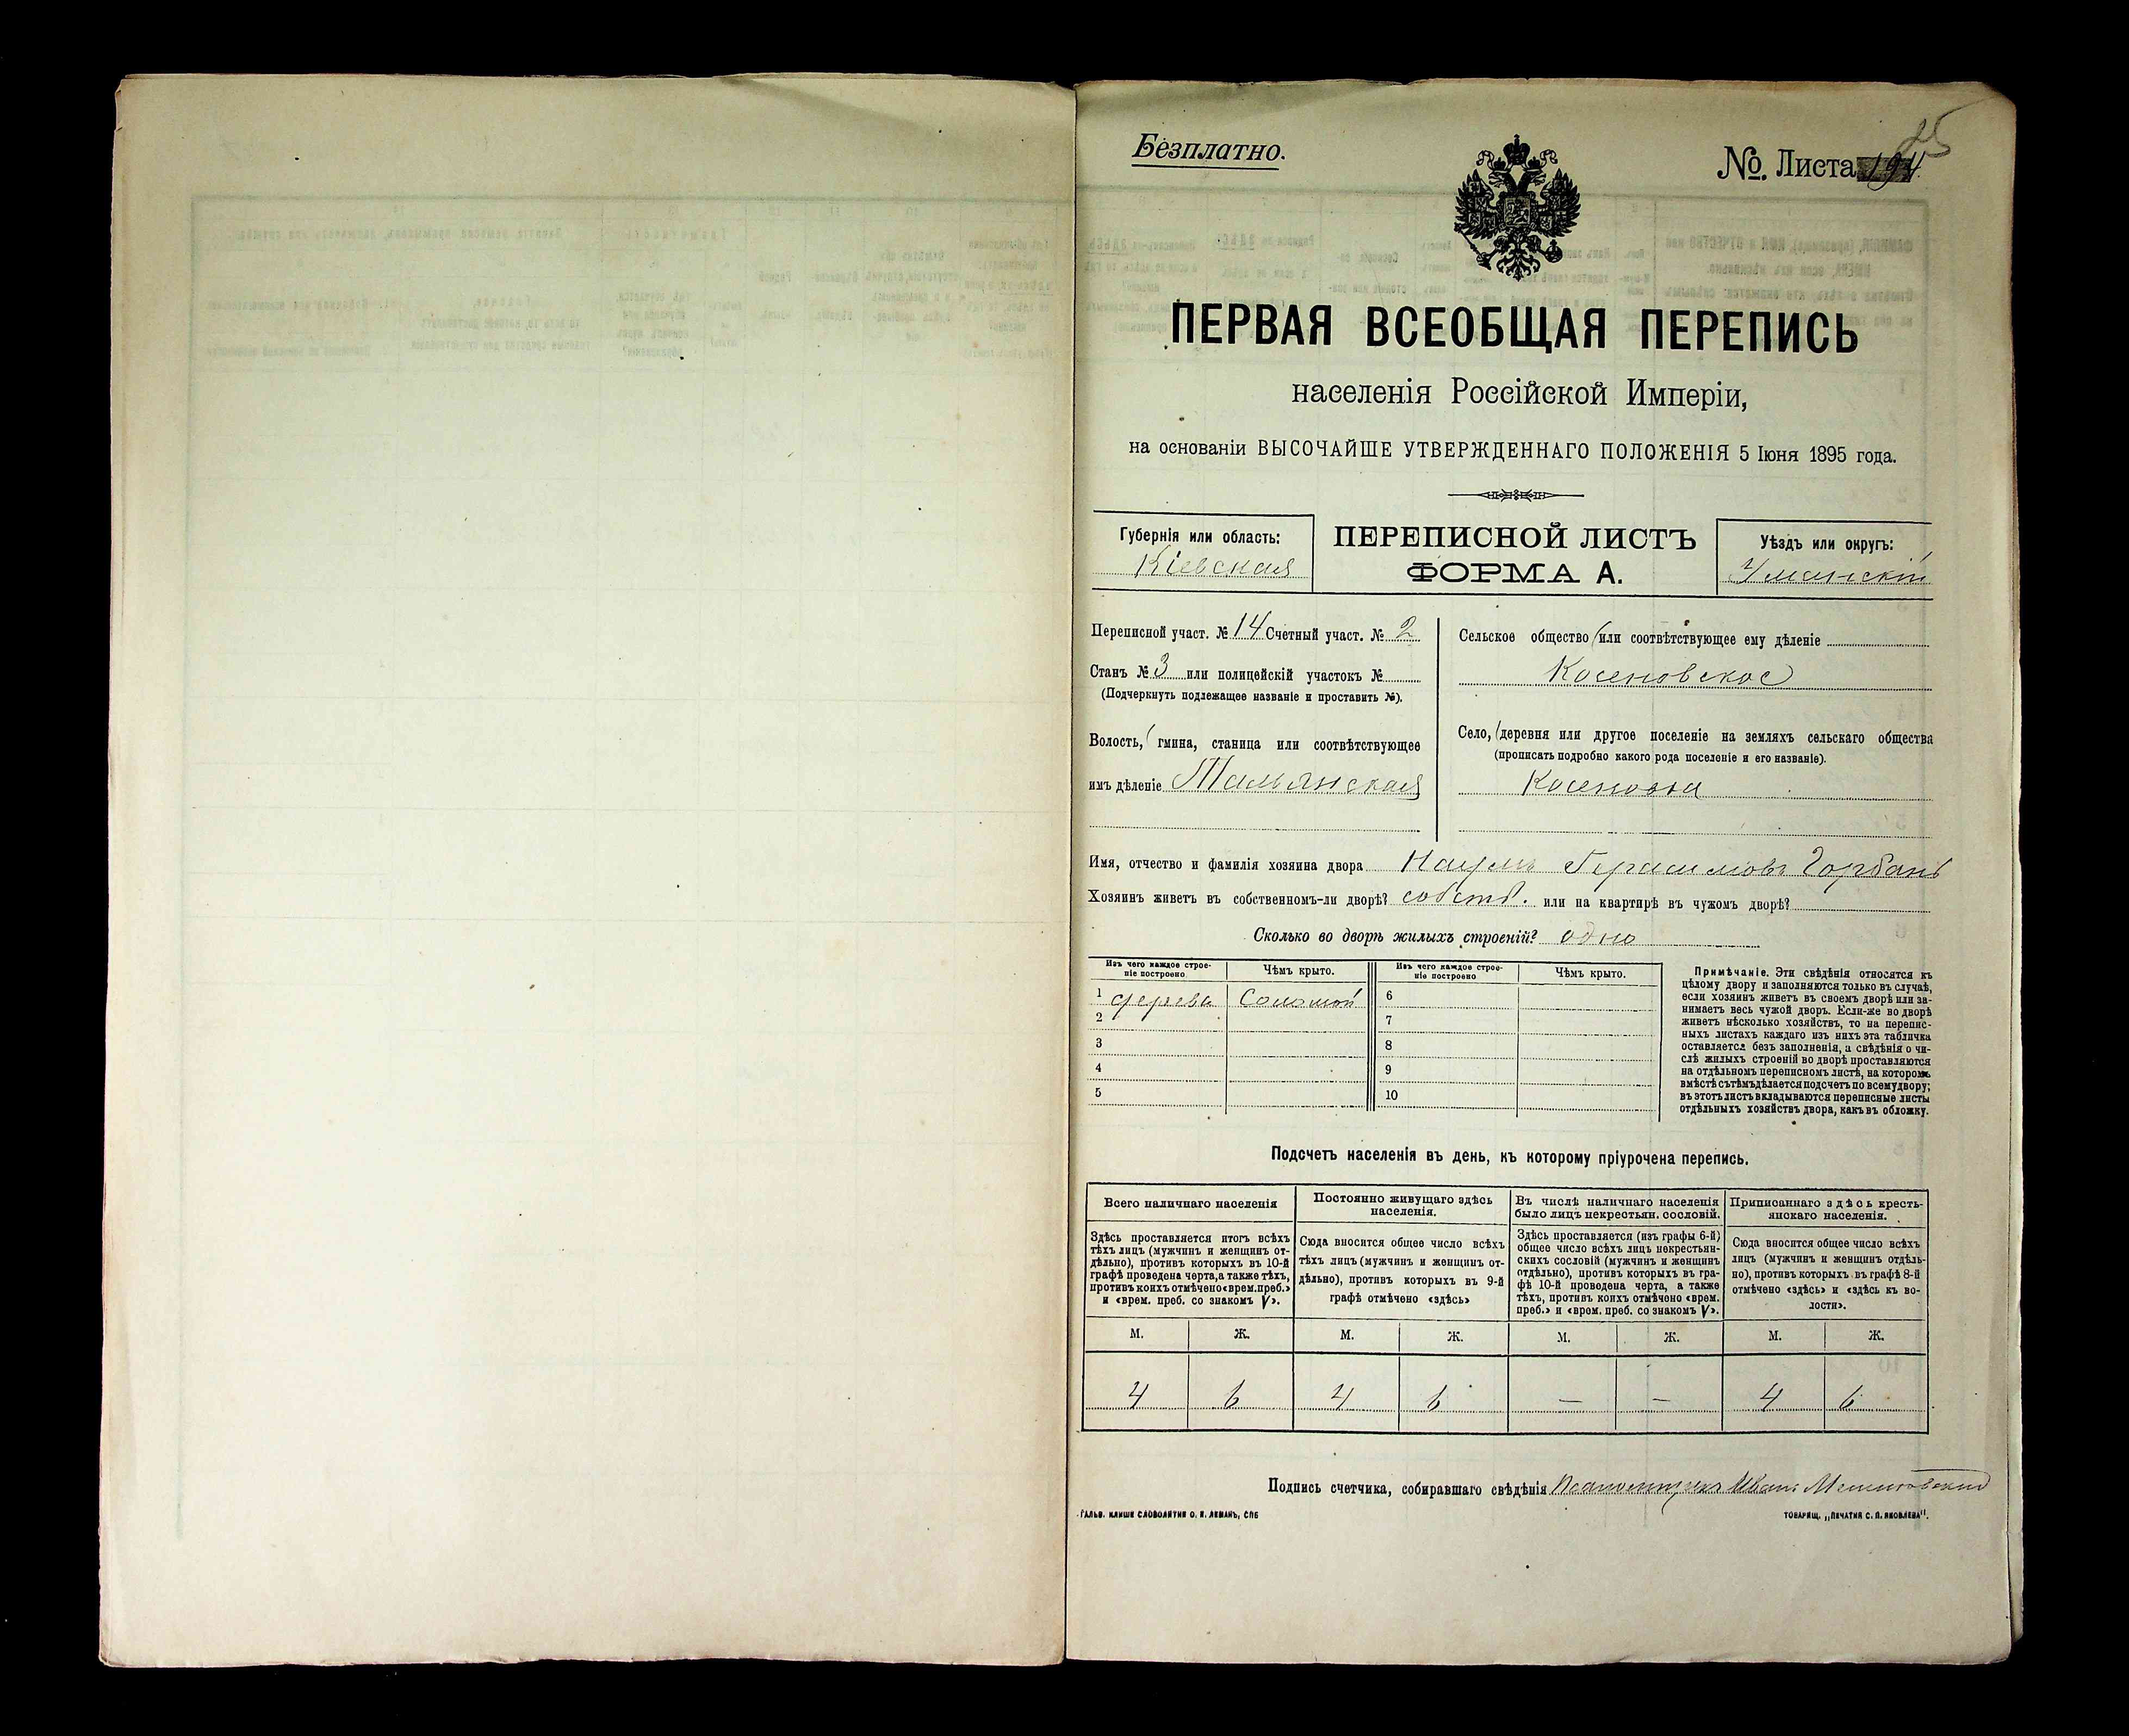 Безплатно.
№. Листа 194.
25
ПЕРВАЯ ВСЕОБЩАЯ ПЕРЕПИСЬ
населенія Россійской Имперіи,
на основаніи ВЫСОЧАЙШЕ УТВЕРЖДЕННАГО ПОЛОЖЕНІЯ 5 Іюня 1895 года.
Губернія или область:
Кіевская
ПЕРЕПИСНОЙ ЛИСТЪ
ФОРМА А.
Уѣздъ или округъ:
Уманскій
Переписной участ. № 14 Счетный участ. № 2
Станъ № 3 или полицейскій участокъ №
(Подчеркнуть подлежащее названіе и проставить №).
Волость, гмина, станица или соотвѣтствующее
имъ дѣленіе Тальянская
Сельское общество или соотвѣтствующее ему дѣленіе
Косеновское
Село, деревня или другое поселеніе на земляхъ сельскаго общества
(прописать подробно какого рода поселеніе и его названіе).
Косеновка
Имя, отчество и фамилія хозяина двора Наумъ Герасимовъ Горбань
Хозяинъ живетъ въ собственномъ-ли дворѣ? собств. или на квартирѣ въ чужомъ дворѣ?
Сколько во дворѣ жилыхъ строеній? одно
Изъ чего каждое строе-
ніе построено
Чѣмъ крыто.
Изъ чего каждое строе-
ніе построено
Чѣмъ крыто.
1 дерева Соломой 6
2 7
3 8
4 9
5 10
Примѣчаніе. Эти свѣдѣнія относятся къ
цѣлому двору и заполняются только въ случаѣ,
если хозяинъ живетъ въ своемъ дворѣ или за-
нимаетъ весь чужой дворъ. Если-же во дворѣ
живетъ нѣсколько хозяйствъ, то на перепис-
ныхъ листахъ каждаго изъ нихъ эта табличка
оставляется безъ заполненія, а свѣдѣнія о чи-
слѣ жилыхъ строеній во дворѣ проставляются
на отдѣльномъ переписномъ листѣ, на которомъ
вмѣстѣ съ тѣмъ дѣлается подсчетъ по всему двору;
въ этотъ листъ вкладываются переписные листы
отдѣльныхъ хозяйствъ двора, какъ въ обложку.
Подсчетъ населенія въ день, къ которому пріурочена перепись.
Всего наличнаго населенія
Здѣсь проставляется итогъ всѣхъ
тѣхъ лицъ (мужчинъ и женщинъ от-
дѣльно), противъ которыхъ въ 10-й
графѣ проведена черта, а также тѣхъ,
противъ коихъ отмѣчено «врем. преб.»
и «врем. преб. со знакомъ V».
Постоянно живущаго здѣсь
населенія.
Сюда вносится общее число всѣхъ
тѣхъ лицъ (мужчинъ и женщинъ от-
дѣльно), противъ которыхъ въ 9-й
графѣ отмѣчено «здѣсь»
Въ числѣ наличнаго населенія
было лицъ некрестьян. сословій.
Здѣсь проставляется (изъ графы 6-й)
общее число всѣхъ лицъ некрестьян-
скихъ сословій (мужчинъ и женщинъ
отдѣльно), противъ которыхъ въ гра-
фѣ 10-й проведена черта, а также
тѣхъ, противъ коихъ отмѣчено «врем.
преб.» и «врем. преб. со знакомъ V».
Приписаннаго здѣсь кресть-
янскаго населенія.
Сюда вносится общее число всѣхъ
лицъ (мужчинъ и женщинъ отдѣль-
но), противъ которыхъ въ графѣ 8-й
отмѣчено «здѣсь» и «здѣсь къ во-
лости».
М. Ж. М. Ж. М. Ж. М. Ж.
4 6 4 6 — — 4 6
Подпись счетчика, собиравшаго свѣдѣнія Псаломщикъ Иванъ
ГАЛЬВ. КЛИШЕ СЛОВОЛИТНИ О. И. ЛЕМАНЪ, СПБ
ТОВАРИЩ. „ПЕЧАТНЯ С. П. ЯКОВЛЕВА".